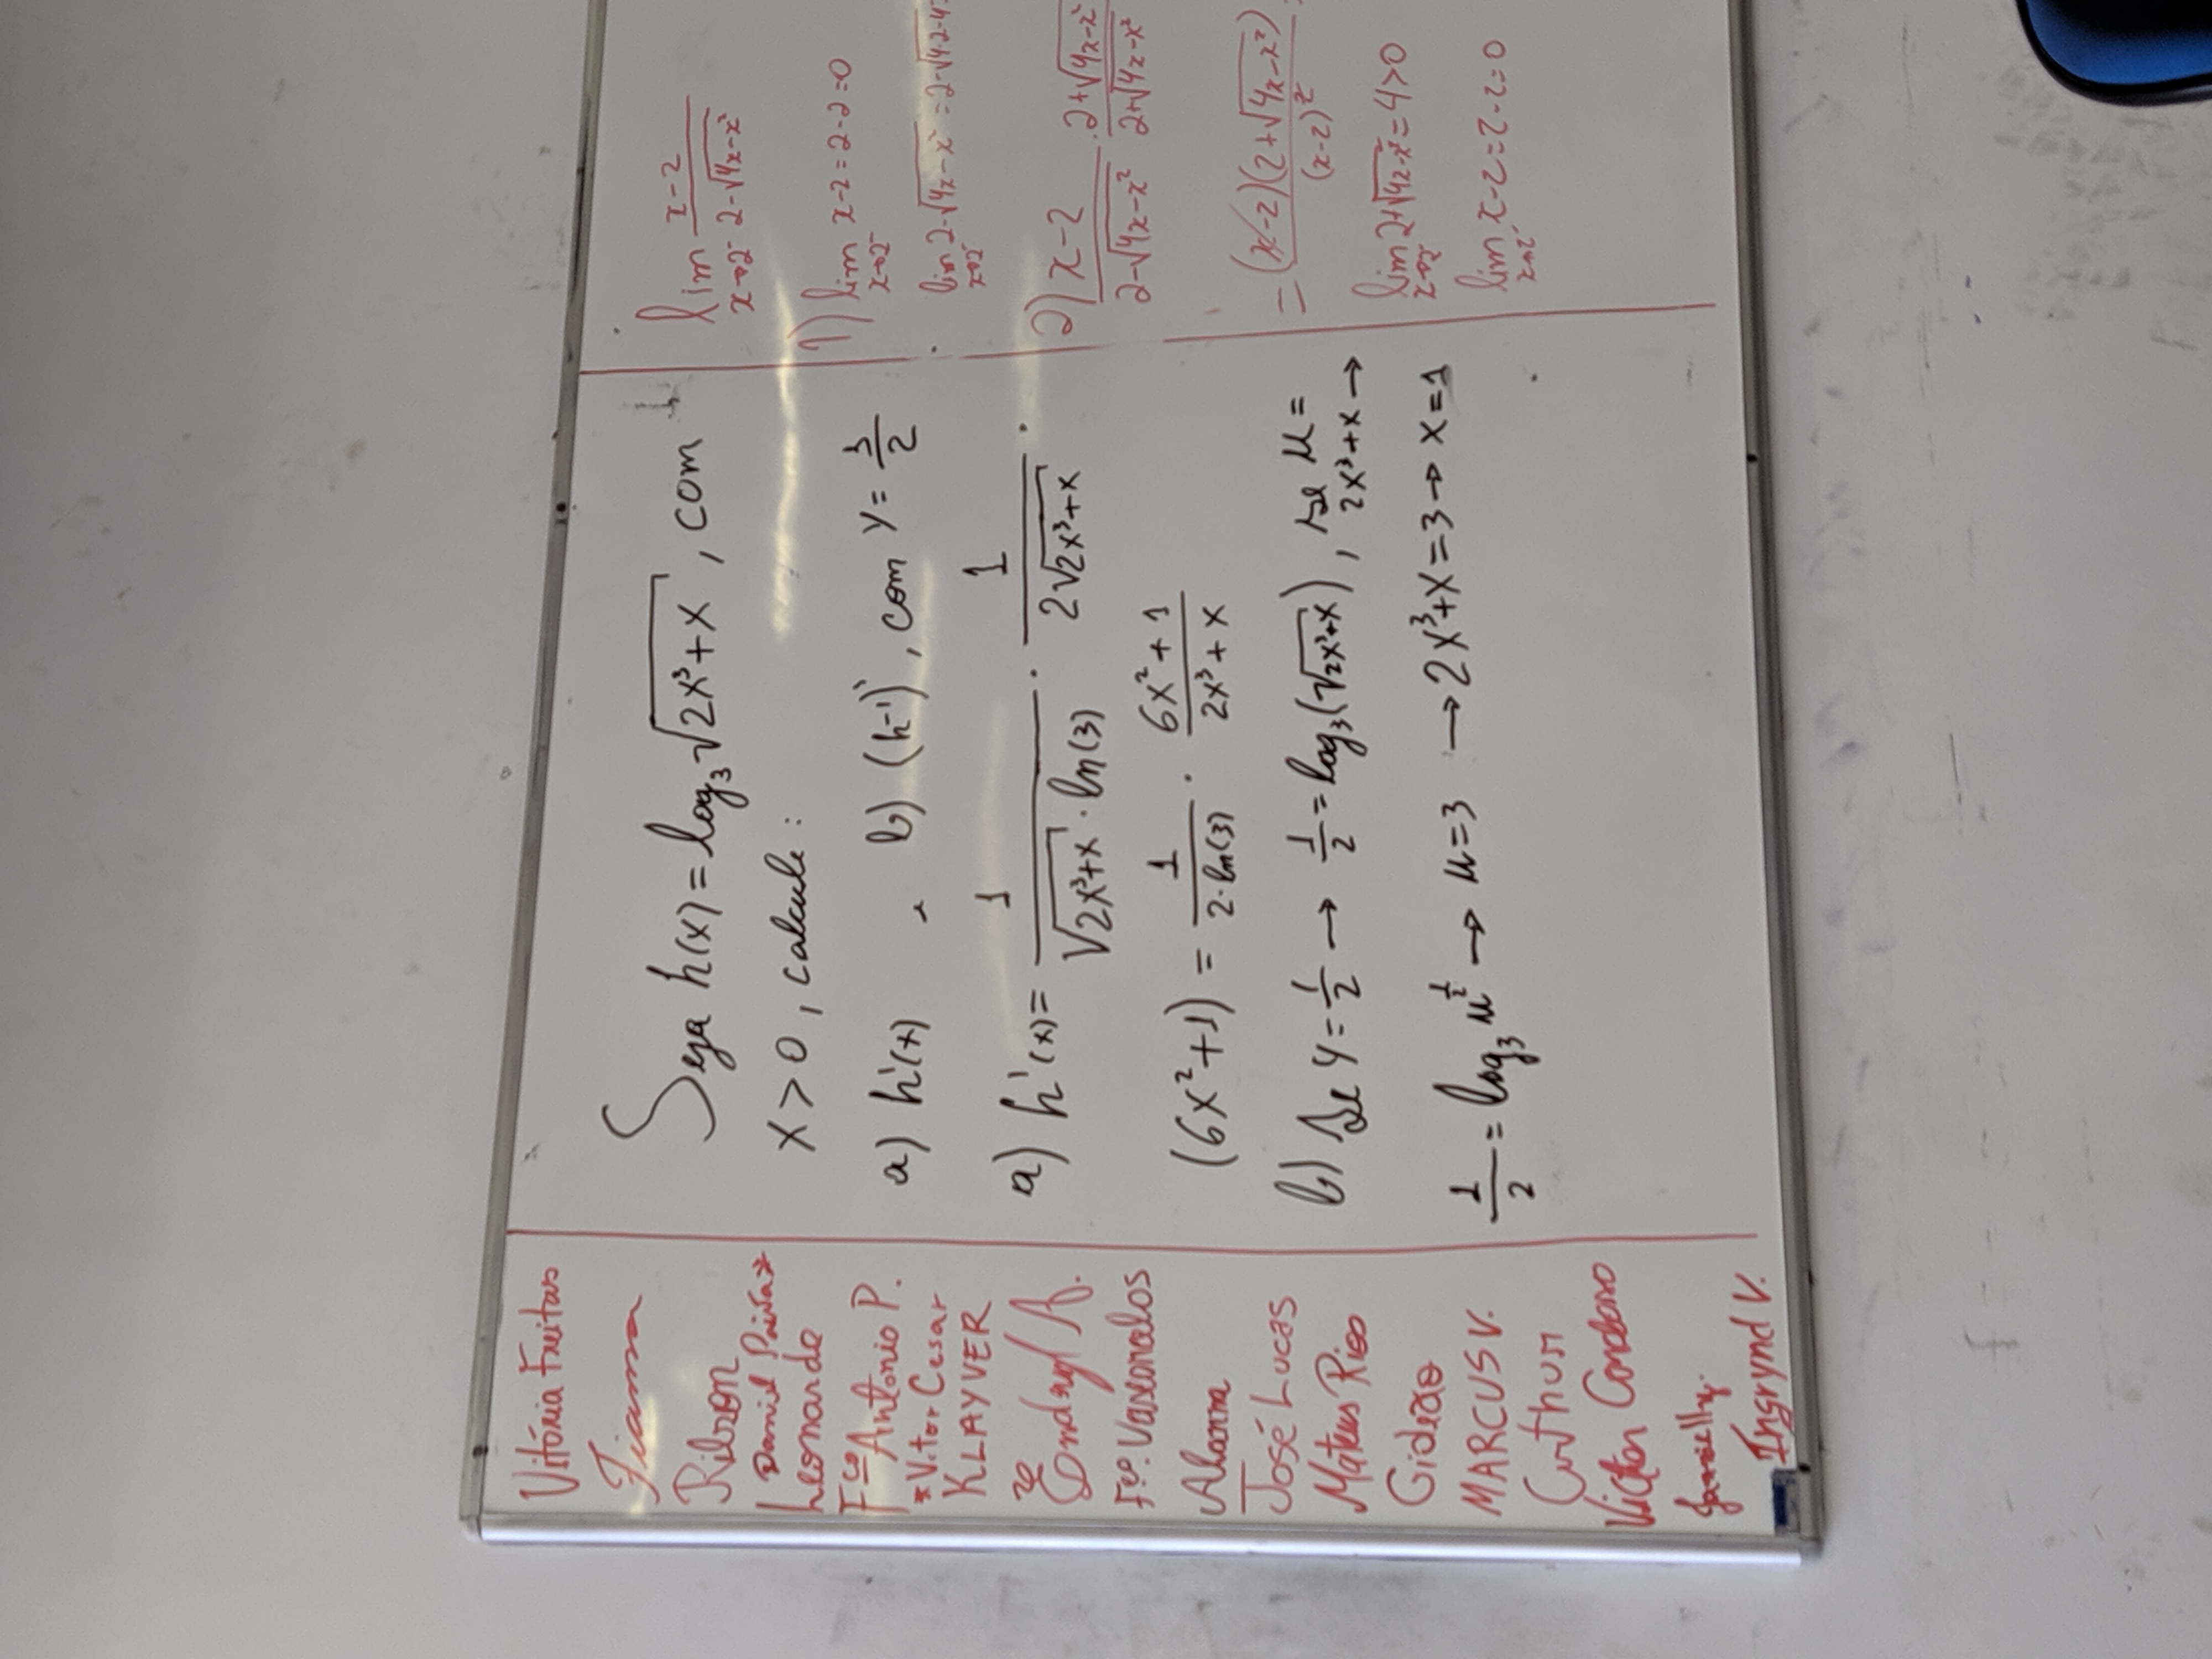 Vitória Freitas
Fianna
Ribson
Daniel Paiva*
Leonardo
Fco Antonio P.
*Vitor Cesar
KLAYVER
Endryl A.
Fco. Vasconcelos
Alanna
José Lucas
Mateus Rios
Gideão
MARCUS V.
Arthur
Victor Cardoso
Jamielly.
Ingrynd V.
Seja h(x) = log₃ √(2x³+x), com
x > 0, calcule:
a) h'(x) b) (h⁻¹)', com y = 1/2
a) h'(x) = 1/(√(2x³+x) · ln(3)) · 1/(2√(2x³+x)) ·
(6x²+1) = 1/(2·ln(3)) · (6x²+1)/(2x³+x)
b) Se y = 1/2 → 1/2 = log₃(√(2x³+x)), se u =
2x³+x →
1/2 = log₃ u^(1/2) → u = 3 → 2x³+x = 3 → x = 1
lim x→2⁻ (x-2)/(2-√(4x-x²))
1) lim x→2⁻ x-2 = 2-2 = 0
lim x→2⁻ 2-√(4x-x²) = 2-√(4·2-4
2) (x-2)/(2-√(4x-x²)) · (2+√(4x-x²))/(2+√(4x-x²))
= (x-2)(2+√(4x-x²))/(x-2)²
lim x→2⁻ 2+√(4x-x²) = 4 > 0
lim x→2⁻ x-2 = 2-2 = 0